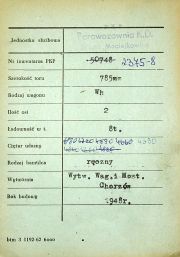 PKP
Parowozownia K.D.
Jednostka służbowa
Nr inwentarza PKP 50948 2375-8
Szerokość toru 785mm
Rodzaj wagonu Wh
Ilość osi 2
Ładowność w t. 8t.
Ciężar własny
Rodzaj hamulca ręczny
Wytwórnia Wytw. Wag. i Most.
Chorzów
Rok budowy 1948r.